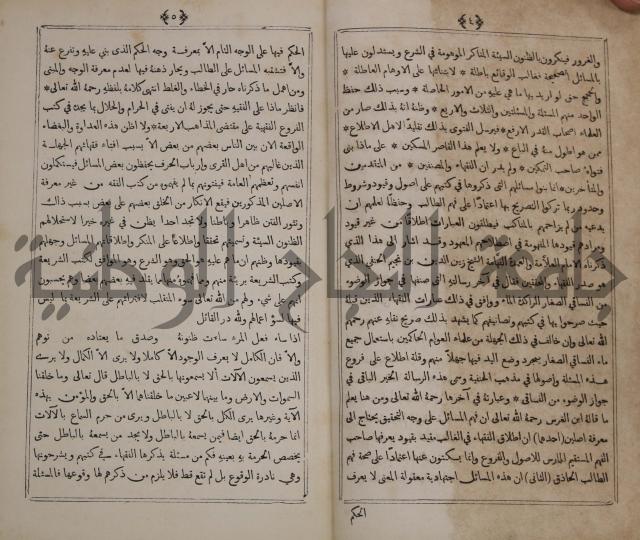 ٤
والغرور فينكرون بالظنون السيئة المناكر الموهومة في الشرع ويستدلون عليها
بالمسائل الصحيحة فغالب الوقائع باطلة * لابتنائها على الاوهام العاطلة *
والحجج حق لو اريد بها ما هي عليه من الامور الحاصلة * وسبب ذلك حفظ
الواحد منهم المسئلة والمسئلتين والثلاث والاربع * وظنه انه بذلك صار من
العلماء اصحاب القدر الارفع * فيرسل الفتوى بذلك تقليدا لاهل الاطلاع *
ممن هو اطول منه في الباع * ولا يعلم هذا القاصر المسكين * على ماذا بنى
فتواه صاحب التمكين * ولم يدر ان الفقهاء والمصنفين * من المتقدمين
والمتأخرين * انما بنوا مسائلهم التي ذكروها في كتبهم على اصول وقيود وشروط
وحدود ربما تركوا التصريح بها اعتمادا على فهم الطالب وحفظا لعلمهم ان
يدعيه من لم يزاحمهم بالمناكب فيطلقون العبارات اطلاقا من غير قيود
ومرادهم قيودها المفهومة في اصطلاحهم المعهود وقد اشار الى هذا الذي
ذكرناه الامام العلامة والعمدة الفهامة الشيخ زين الدين بن نجيم الحنفي الذي
هو صدر الفقهاء والمفتين فقال في آخر رسالته التي صنفها في جواز الوضوء
من الفساقي الصغار الراكدة الماء ووافق في ذلك عبارات الفقهاء الذين قبله
حيث صرحوا بها في كتبهم وتصانيفهم كما يشهد بذلك صريح نقله عنهم رحمهم
الله تعالى وان خالف في ذلك الجهلة من علماء العوام الحاكمين باستعمال جميع
ماء الفساقي الصغار بمجرد وضع اليد فيها جهلا منهم وقلة اطلاع على فروع
هذه المسئلة واصولها في مذهب الحنفية وسمى هذه الرسالة الخير الباقي في
جواز الوضوء من الفساقي * وعبارته في آخرها رحمه الله تعالى ومن هنا يعلم
ما قاله ابن الغرس رحمه الله تعالى ان فهم المسائل على وجه التحقيق يحتاج الى
معرفة اصلين (احدهما) ان اطلاق الفقهاء في الغالب مقيد بقيود يعرفها صاحب
الفهم المستقيم الممارس للاصول والفروع وانما يسكتون عنها اعتمادا على صحة فهم
الطالب الحاذق (الثاني) ان هذه المسائل اجتهادية معقولة المعنى لا يعرف
الحكم
٥
الحكم فيها على الوجه التام الا بمعرفة وجه الحكم الذي بنى عليه وتفرع عنه
والا فتشتبه المسائل على الطالب ويحار ذهنه فيها لعدم معرفة الوجه والمبنى
ومن اهمل ما ذكرناه حار في الخطاء والغلط انتهى كلامه بلفظه رحمه الله تعالى *
فانظر ماذا على الفقيه حتى يجوز له ان يفتي في الحرام والحلال بما يجد في كتب
الفروع الفقهية على مقتضى المذاهب الاربعة * ولا اظن هذه العداوة والبغضاء
الواقعة الآن بين الناس بعضهم من بعض الا بسبب افتاء فقهائهم الجهلة
الذين غالبهم من اهل القرى وارباب الحرف يحفظون بعض المسائل فيستكملون
انفسهم وتعظمهم العامة فيفتونهم بما لم يفهموه من كتب الفقه من غير معرفة
الاصلين المذكورين فيقع الانكار من الخلق بعضهم على بعض بسبب ذلك
وتثور الفتن ظاهرا وباطنا ولا تجد احدا يظن في غيره خيرا لاستحلالهم
الظنون السيئة وتسميتهم تحققا واطلاعا على المنكر واطلاقاتهم المسائل وجهلهم
بقيودها وظنهم ان ما هم عليه هو الحق وهو الشرع وهو الموافق لكتب الشريعة
وكتب الشريعة بريئة منهم ومما فهموه منها بما يقلد فيه بعضهم بعضا وهم يحسبون
انهم على شيء * ولهم من الله تعالى سوء المنقلب لافترائهم على الشريعة بما ليس
فيها لسؤ اعمالهم ولله در القائل
اذا ساء فعل المرء ساءت ظنونه وصدق ما يعتاده من توهم
والا فان الكامل لا يعرف الوجود الا كاملا ولا يرى الا الكمال ولا يرى
الذين يسمعون الآلات الا يسمعونها بالحق لا بالباطل قال تعالى وما خلقنا
السموات والارض وما بينهما لاعبين ما خلقناهما الا بالحق والمؤمن بهذه
الآية وغيرها يرى الكل بالحق لا بالباطل ويرى من حرم السماع بالآلات
انما حرمه بالحق ايضا فيمن يسمعه بالباطل ولا يجد من يسمعه بالباطل حتى
يخصص الحرمة به بعينه فكم من مسئلة يذكرها الفقهاء في كتبهم ويشرحونها
وهي نادرة الوقوع بل لم تقع قط فلا يلزم من ذكرهم لها وقوعها فالمسئلة
جامعة النجاح الوطنية